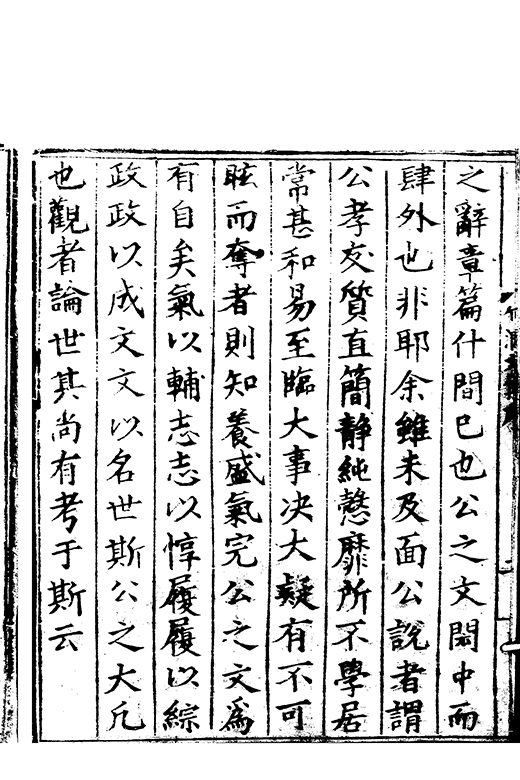 之辭章篇什間已也公之文閎中而
肆外也非耶余雖未及面公說者謂
公孝友質直簡靜純慤靡所不學居
常甚和易至臨大事決大疑有不可
眩而奪者則知養盛氣完公之文爲
有自矣氣以輔志志以惇履履以綜
政政以成文文以名世斯公之大凡
也觀者論世其尚有考于斯云